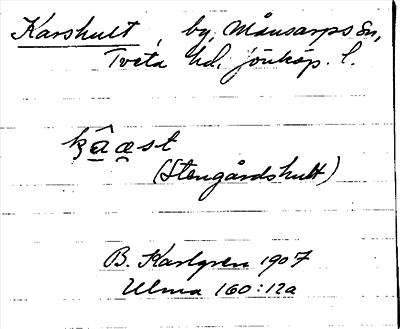 Karshult, by, Månsarps sn,
Tveta hd, Jönköp. l.
ka̲a̲st
(Stengårdshult)
B. Karlgren 1907
Ulma 160:12a